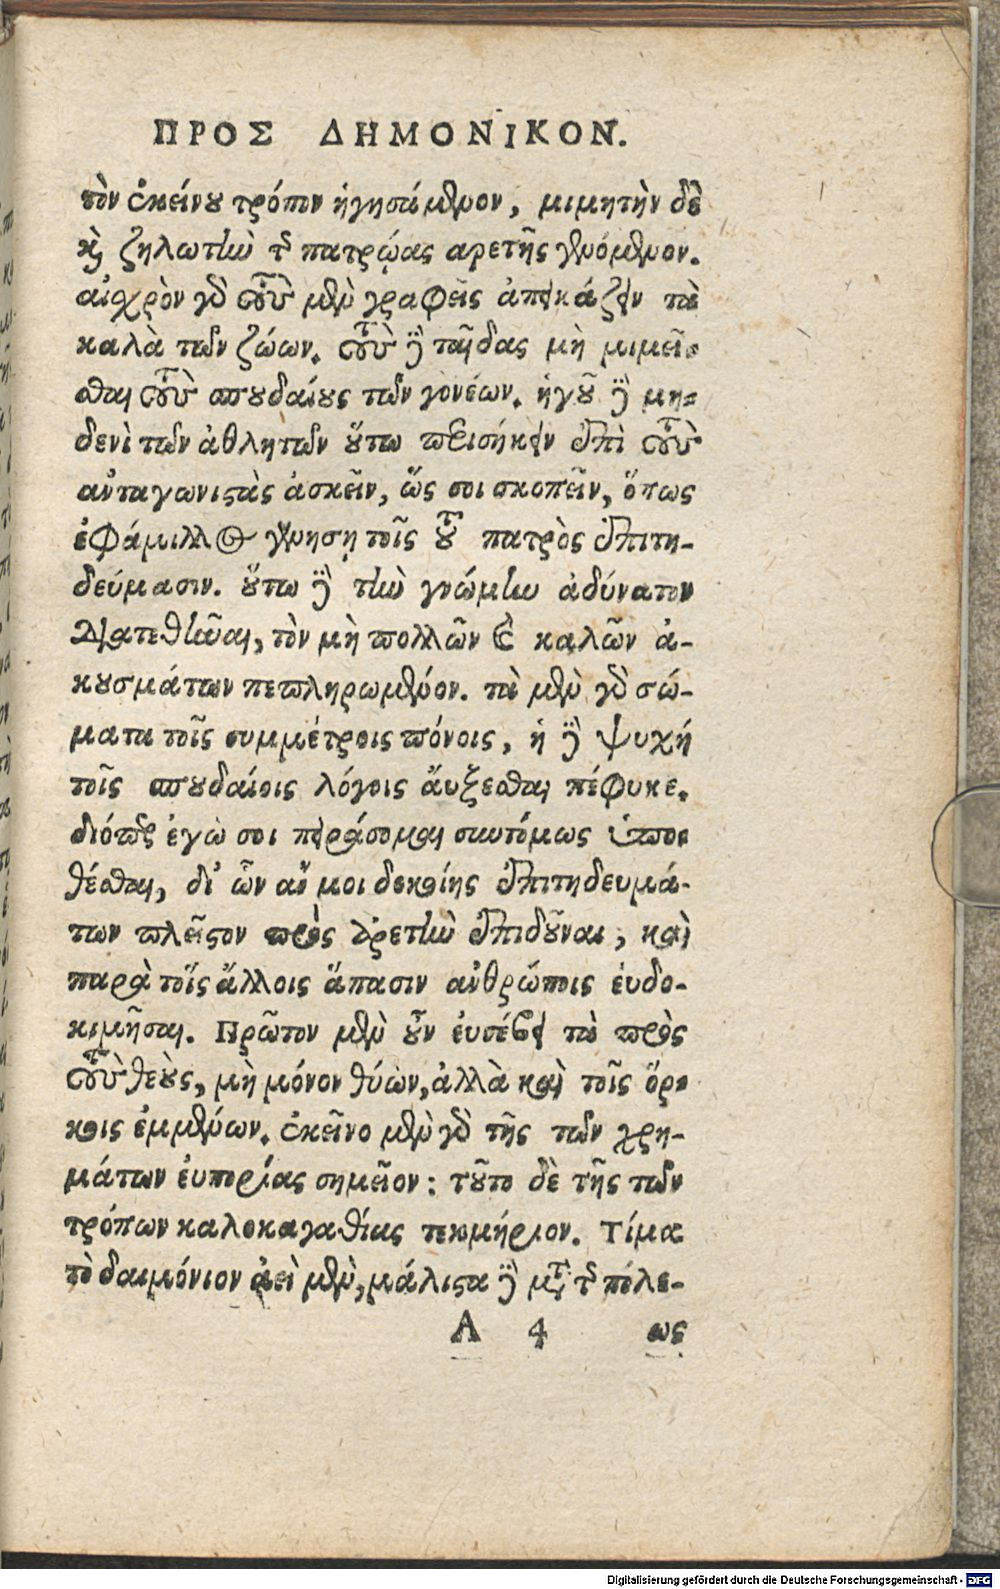 ΠΡΟΣ ΔΗΜΟΝΙΚΟΝ.
τὸν ἐκείνου τρόπον ἡγησάμενον, μιμητὴν δὲ
καὶ ζηλωτὴν τῆς πατρῴας αρετῆς γενόμενον.
αἰσχρὸν γὰρ τοὺς μὲν γραφεῖς ἀπεικάζειν τὰ
καλὰ τῶν ζώων. τοὺς δὲ παῖδας μὴ μιμεῖ-
σθαι τοὺς σπουδαίους τῶν γονέων. ἡγοῦ δὲ μη-
δενὶ τῶν ἀθλητῶν οὕτω προσήκειν ἐπὶ τοὺς
ανταγωνιστὰς ἀσκεῖν, ὥς σοι σκοπεῖν, ὅπως
ἐφάμιλλος γενήσῃ τοῖς τοῦ πατρὸς ἐπιτη-
δεύμασιν. οὕτω δὲ τὴν γνώμην ἀδύνατον
διατεθῆναι, τὸν μὴ πολλῶν καὶ καλῶν ἀ-
κουσμάτων πεπληρωμένον. τὰ μὲν γὰρ σώ-
ματα τοῖς συμμέτροις πόνοις, ἡ δὲ ψυχή
τοῖς σπουδαίοις λόγοις ἄυξεσθαι πέφυκε.
διόπερ ἐγὼ σοι πειράσομαι συντόμως ὑπο-
θέσθαι, δι' ὧν ἄν μοι δοκοίης ἐπιτηδευμά-
των πλεῖστον πρὸς ἀρετὴν ἐπιδοῦναι, καὶ
παρὰ τοῖς ἄλλοις ἅπασιν ανθρώποις ἐυδο-
κιμῆσαι. Πρῶτον μὲν οὖν ἐυσέβει τὰ πρὸς
τοὺς θεοὺς, μὴ μόνον θύων, ἀλλὰ καὶ τοῖς ὅρ-
κοις ἐμμένων. ἐκεῖνο μὲν γὰρ τῆς τῶν χρη-
μάτων ἐυπορίας σημεῖον: τοῦτο δὲ τῆς τῶν
τρόπων καλοκαγαθίας τεκμήριον. Τίμα
τὸ δαιμόνιον ἀεὶ μὲν, μάλιστα δὲ μετὰ τῆς πόλε-
A 4 ως
Digitalisierung gefördert durch die Deutsche Forschungsgemeinschaft - DFG